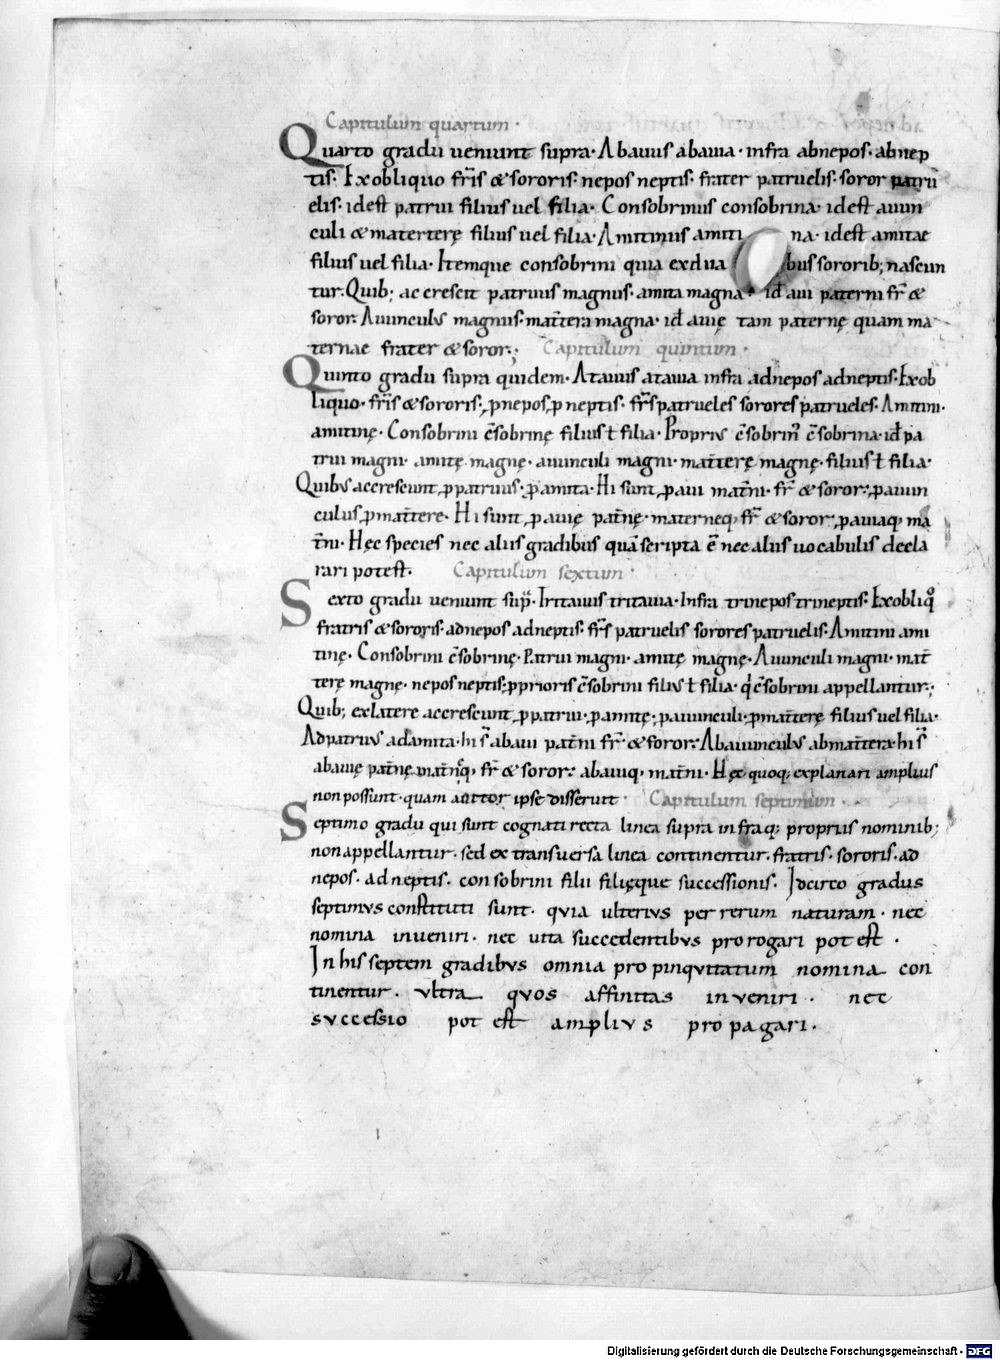 Capitulum quartum·
Quarto gradu ueniunt supra· Abauus abauia· infra abnepos· abnep
tis· Ex obliquo fr̄is & sororis· nepos neptis· frater patruelis· soror patru
elis· id est patrui filius uel filia· Consobrinus consobrina· id est auun
culi & materterę filius uel filia· Amitinus amiti na· id est amitae
filius uel filia· Itemque consobrini qui a ex dua bus sororib; nascun
tur· Quib; accrescit patruus magnus· amita magna· id̄ aui paterni fr̄ &
soror· Auunculus magnus· mat̄tera magna· id̄ auię tam paternę quam ma
ternae frater & soror; Capitulum quintum·
Quinto gradu supra quidem· Atauus atauia infra adnepos adneptis· Ex ob
liquo· fr̄is & sororis· ꝓnepos, ꝓneptis· fr̄s patrueles sorores patrueles· Amitini·
amitinę· Consobrini c̄sobrinę filius ł filia· Proprius c̄sobrin᷒ c̄sobrina· id̄ pa
trui magni· amitę magnę· auunculi magni· mat̄terę magnę· filius ł filia·
Quibus accrescunt, ꝓpatruus· ꝓamita· Hi sunt, ꝓaui mat̄ni· fr̄ & soror; ꝓauun
culus, ꝓmat̄tere· Hi sunt, ꝓauię pat̄nę· materneq; fr̄ & soror; ꝓauiaq; ma
t̄ni· Hęc species nec aliis gradibus quā scripta ē nec aliis uocabulis decla
rari potest· Capitulum sextum·
Sexto gradu ueniunt sup̄· Tritauus tritauia· Infra trinepos trineptis· Ex obliqͦ
fratris & sororis· adnepos adneptis· fr̄s patruelis sorores patruelis· Amitini ami
tinę· Consobrini c̄sobrinę· Patrui magni· amitę magnę· Auunculi magni· mat̄
terę magnę· nepos neptis; ꝓprioris c̄sobrini filius ł filia· q̇ c̄sobrini appellantur;
Quib; ex latere accrescunt, ꝓpatrui· ꝓamitę; ꝓauunculi; ꝓmat̄terę filius uel filia·
Adpatruus adamita· hi s̄ abaui pat̄ni fr̄· & soror: Abauunculus abmat̄tera· hi s̄
abauię pat̄nę mat̄nęq; fr̄ & soror: abauiq; mat̄ni· Hęc quoq; explanari amplius
non possunt· quam auctor ipse disseruit· Capitulum septimum·
Septimo gradu qui sunt cognati recta linea supra infraq; propriis nominib;
non appellantur· sed ex transuersa linea continentur· fratris· sororis· ad
nepos· adneptis· consobrini filii filięque successionis· Idcirco gradus
septimus constituti sunt· quia ulterius per rerum naturam· nec
nomina inueniri· nec uita succedentibus prorogari potest·
In his septem gradibus omnia propinquitatum nomina con
tinentur· ultra quos affinitas inueniri· nec
successio potest amplius propagari·
Digitalisierung gefördert durch die Deutsche Forschungsgemeinschaft - DFG